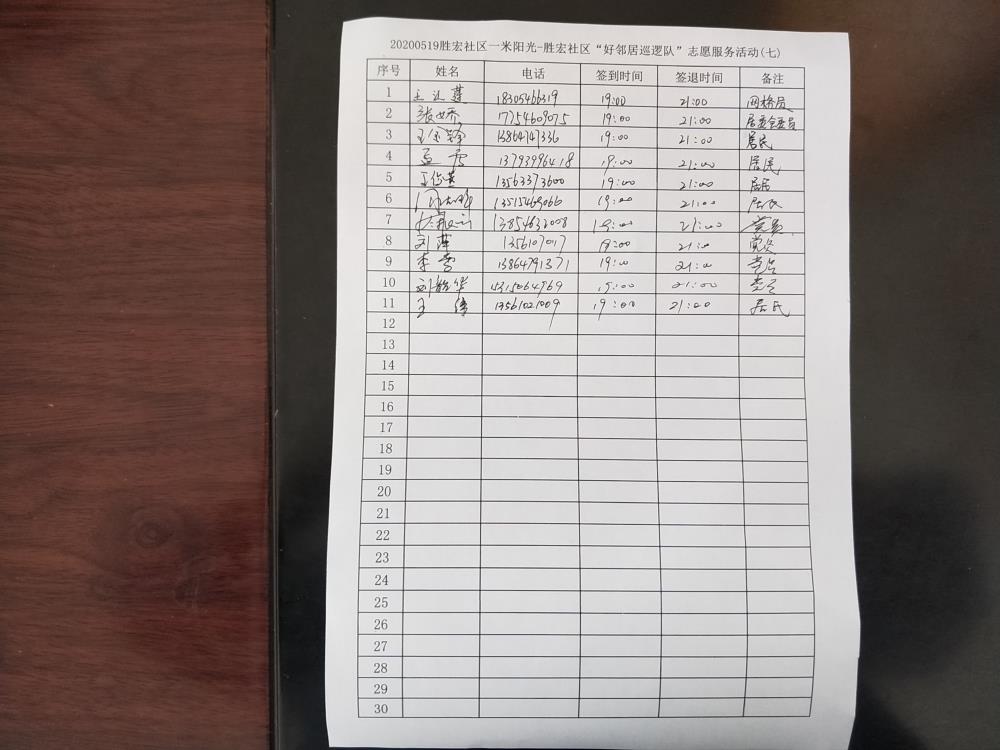 20200519胜宏社区一米阳光-胜宏社区“好邻居巡逻队”志愿服务活动(七)
序号 姓名 电话 签到时间 签退时间 备注
1 18305466319 19:00 21:00 网格员
2 张娇 17754609075 19:00 21:00 居委会委员
3 13864747336 19:00 21:00 居民
4 13793996418 19:00 21:00 居民
5 13563373600 19:00 21:00 居民
6 13515469066 19:00 21:00 居民
7 13854632008 19:00 21:00 党员
8 刘萍 1356107017 19:00 21:0 党员
9 李雪 13864791371 19:00 21:0 党员
10 15315064769 19:00 21:00 党员
11 王倩 13561021009 19:00 21:00 居民
12
13
14
15
16
17
18
19
20
21
22
23
24
25
26
27
28
29
30